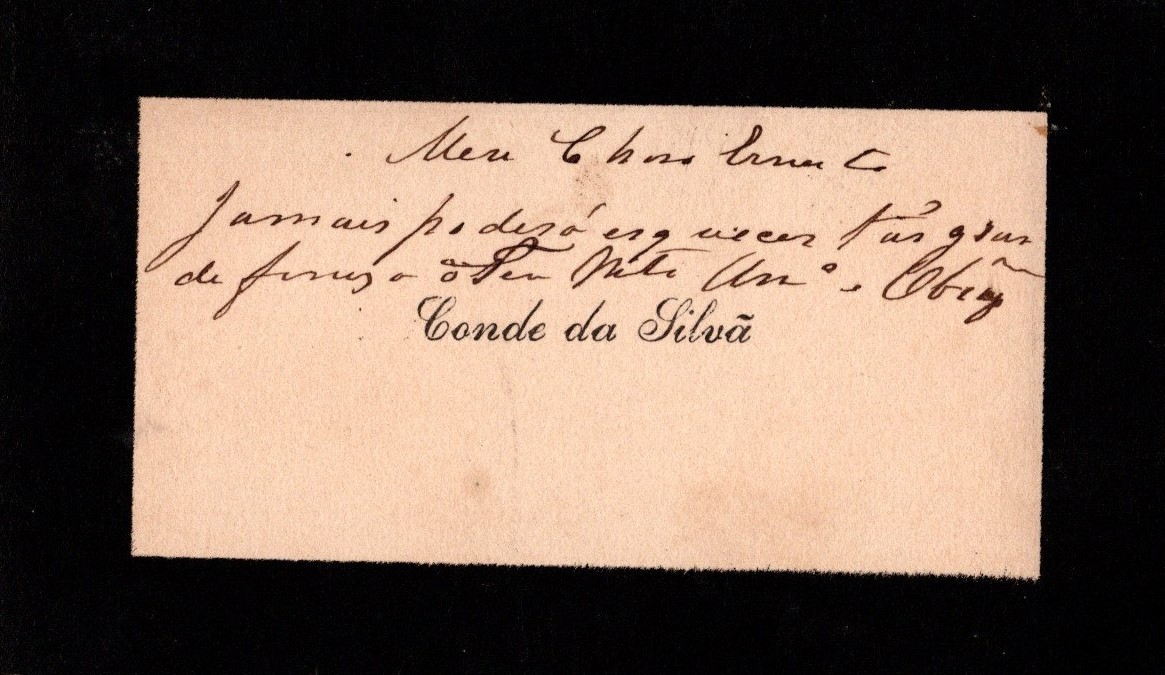 Meu Charo Ernesto
Jamais poderá esquecer tão gran
de fineza o Teu Mto Amº e Obrigº
Conde da Silvã